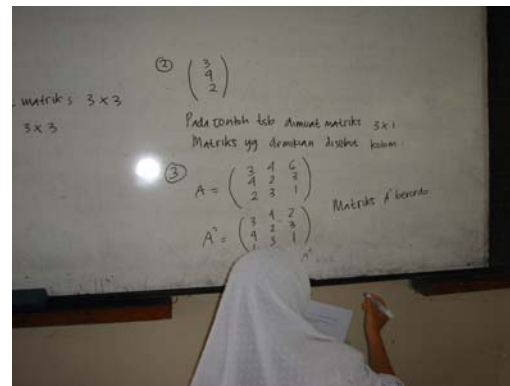 matriks 3 x 3
3 x 3
② ( 3
4
2 )
Pada contoh tsb dimuat matriks 3 x 1
Matriks yg demikian disebut kolom.
③
A = ( 3 4 6
4 2 3
2 3 1 )
Matriks A berordo
A = ( 3 4 2
4 2 3
3 1 )